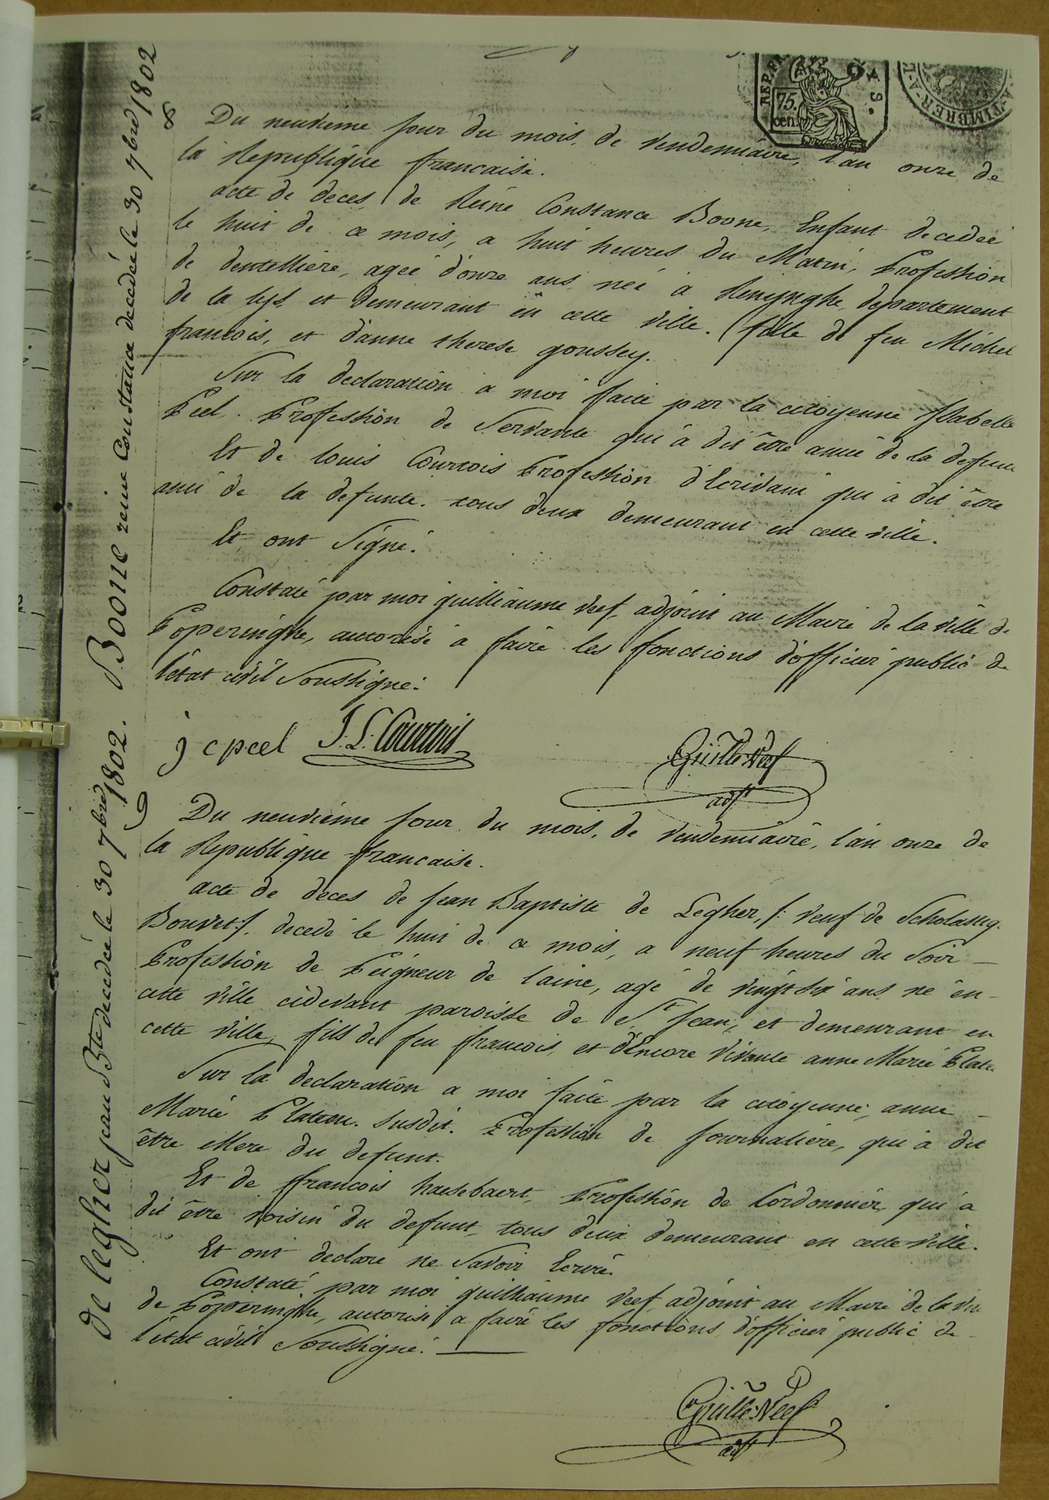 REP. FRA
75.
cen.
TIMBRE
8
Boone reine Constance decedée le 30 7bre 1802
Du neuvieme jour du mois, de vendemiaire, l'an onze de
la Republique francaise.
acte de deces de Reine Constance Boone, Enfant decedeé
le huit de ce mois, a huit heures du Matin, Profession
de dentelliere, ageé d'onze ans neé à Renynghe departement
de la lys et demeurant en cette ville. fille de feu Michel
francois, et d'anne therese goussey.
Sur la declaration a moi faite par la citoyenne Ysabelle
Peel. Profession de Servante qui à dit être amie de la defunte
Et de louis Courtois Profession d'Ecrivain qui à dit être
ami de la defunte. tous deux demeurant en cette ville.
Et ont Signé.
Constaté par moi guilliaume Neef adjoint au Maire de la ville de
Poperinghe, autorisé a faire les fonctions d'officier public de
l'état civil Soussigné.
j c peel J. L. Courtois
Guille Neef
adjt
9
de legher jean Bte decedée le 30 7bre 1802.
Du neuvieme jour du mois, de vendemiaire, l'an onze de
la Republique francaise.
acte de deces de Jean Baptiste de Legher, /: veuf de Scholastiq.
Bouvet :/. decedé le huit de ce mois, a neuf heures du Soir —
Profession de Peigneur de laine, agé de vingt six ans né en -
cette ville cidevant paroisse de St Jean, et demeurant en
cette ville, fils de feu francois, et d'Encore vivante anne Marie Plate
Sur la declaration a moi faite par la citoyenne, anne —
Marie Plateau. susdit. Profession de journaliere, qui à dit
être Mere du defunt.
Et de francois haesebaert, Profession de Cordonnier qui a
dit être voisin du defunt, tous deux demeurant en cette ville.
Et ont declaré ne Savoir Ecrire.
Constaté par moi guilliaume Neef adjoint au Maire de la ville
de Poperinghe, autorisé a faire les fonctions d'officier public de
l'état civil Soussigné.
Guille Neef
adjt